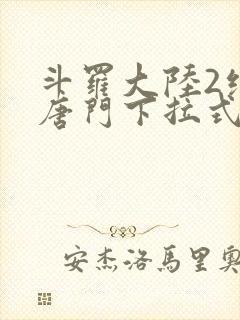 斗羅大陸2
唐門下拉式
安杰洛馬里奧